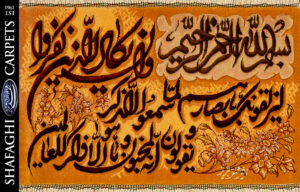 بسم الله الرحمن الرحيم
وان يكاد الذين كفروا
ليزلقونك بابصارهم لما سمعوا الذكر
و يقولون انه لمجنون و ما هو الا ذكر للعالمين
SHAFAGHI CARPETS
EST 1961